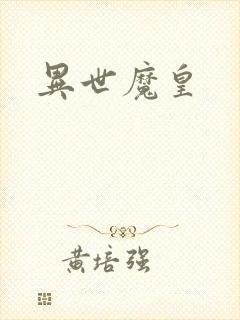 異世魔皇
黄培强